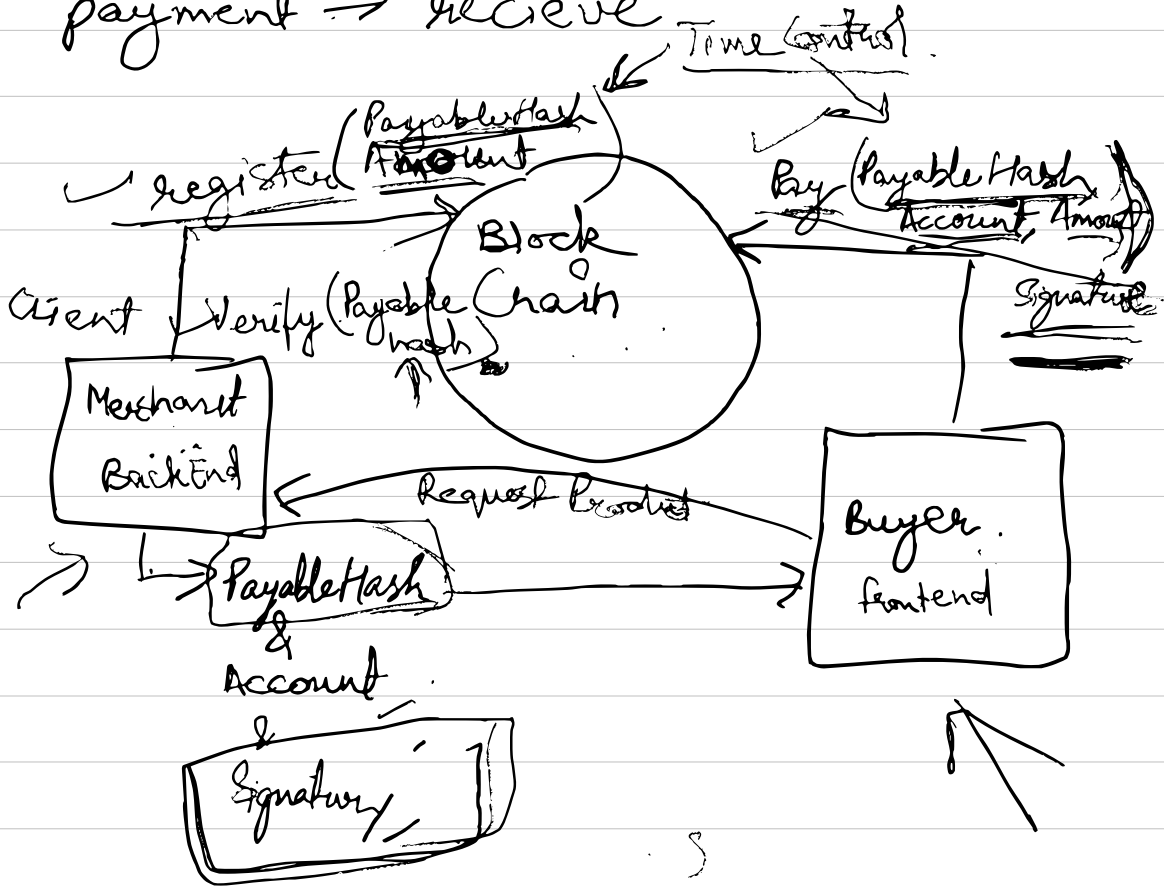 payment → recieve
Time Control.
(PayableHash
Amount
✓ register
Pay (PayableHash
Account, Amount)
Signature
Block
Chain
Client
Verify (Payable
hash)
Merchant
BackEnd
Request Product
Buyer.
frontend
PayableHash
&
Account
&
Signature